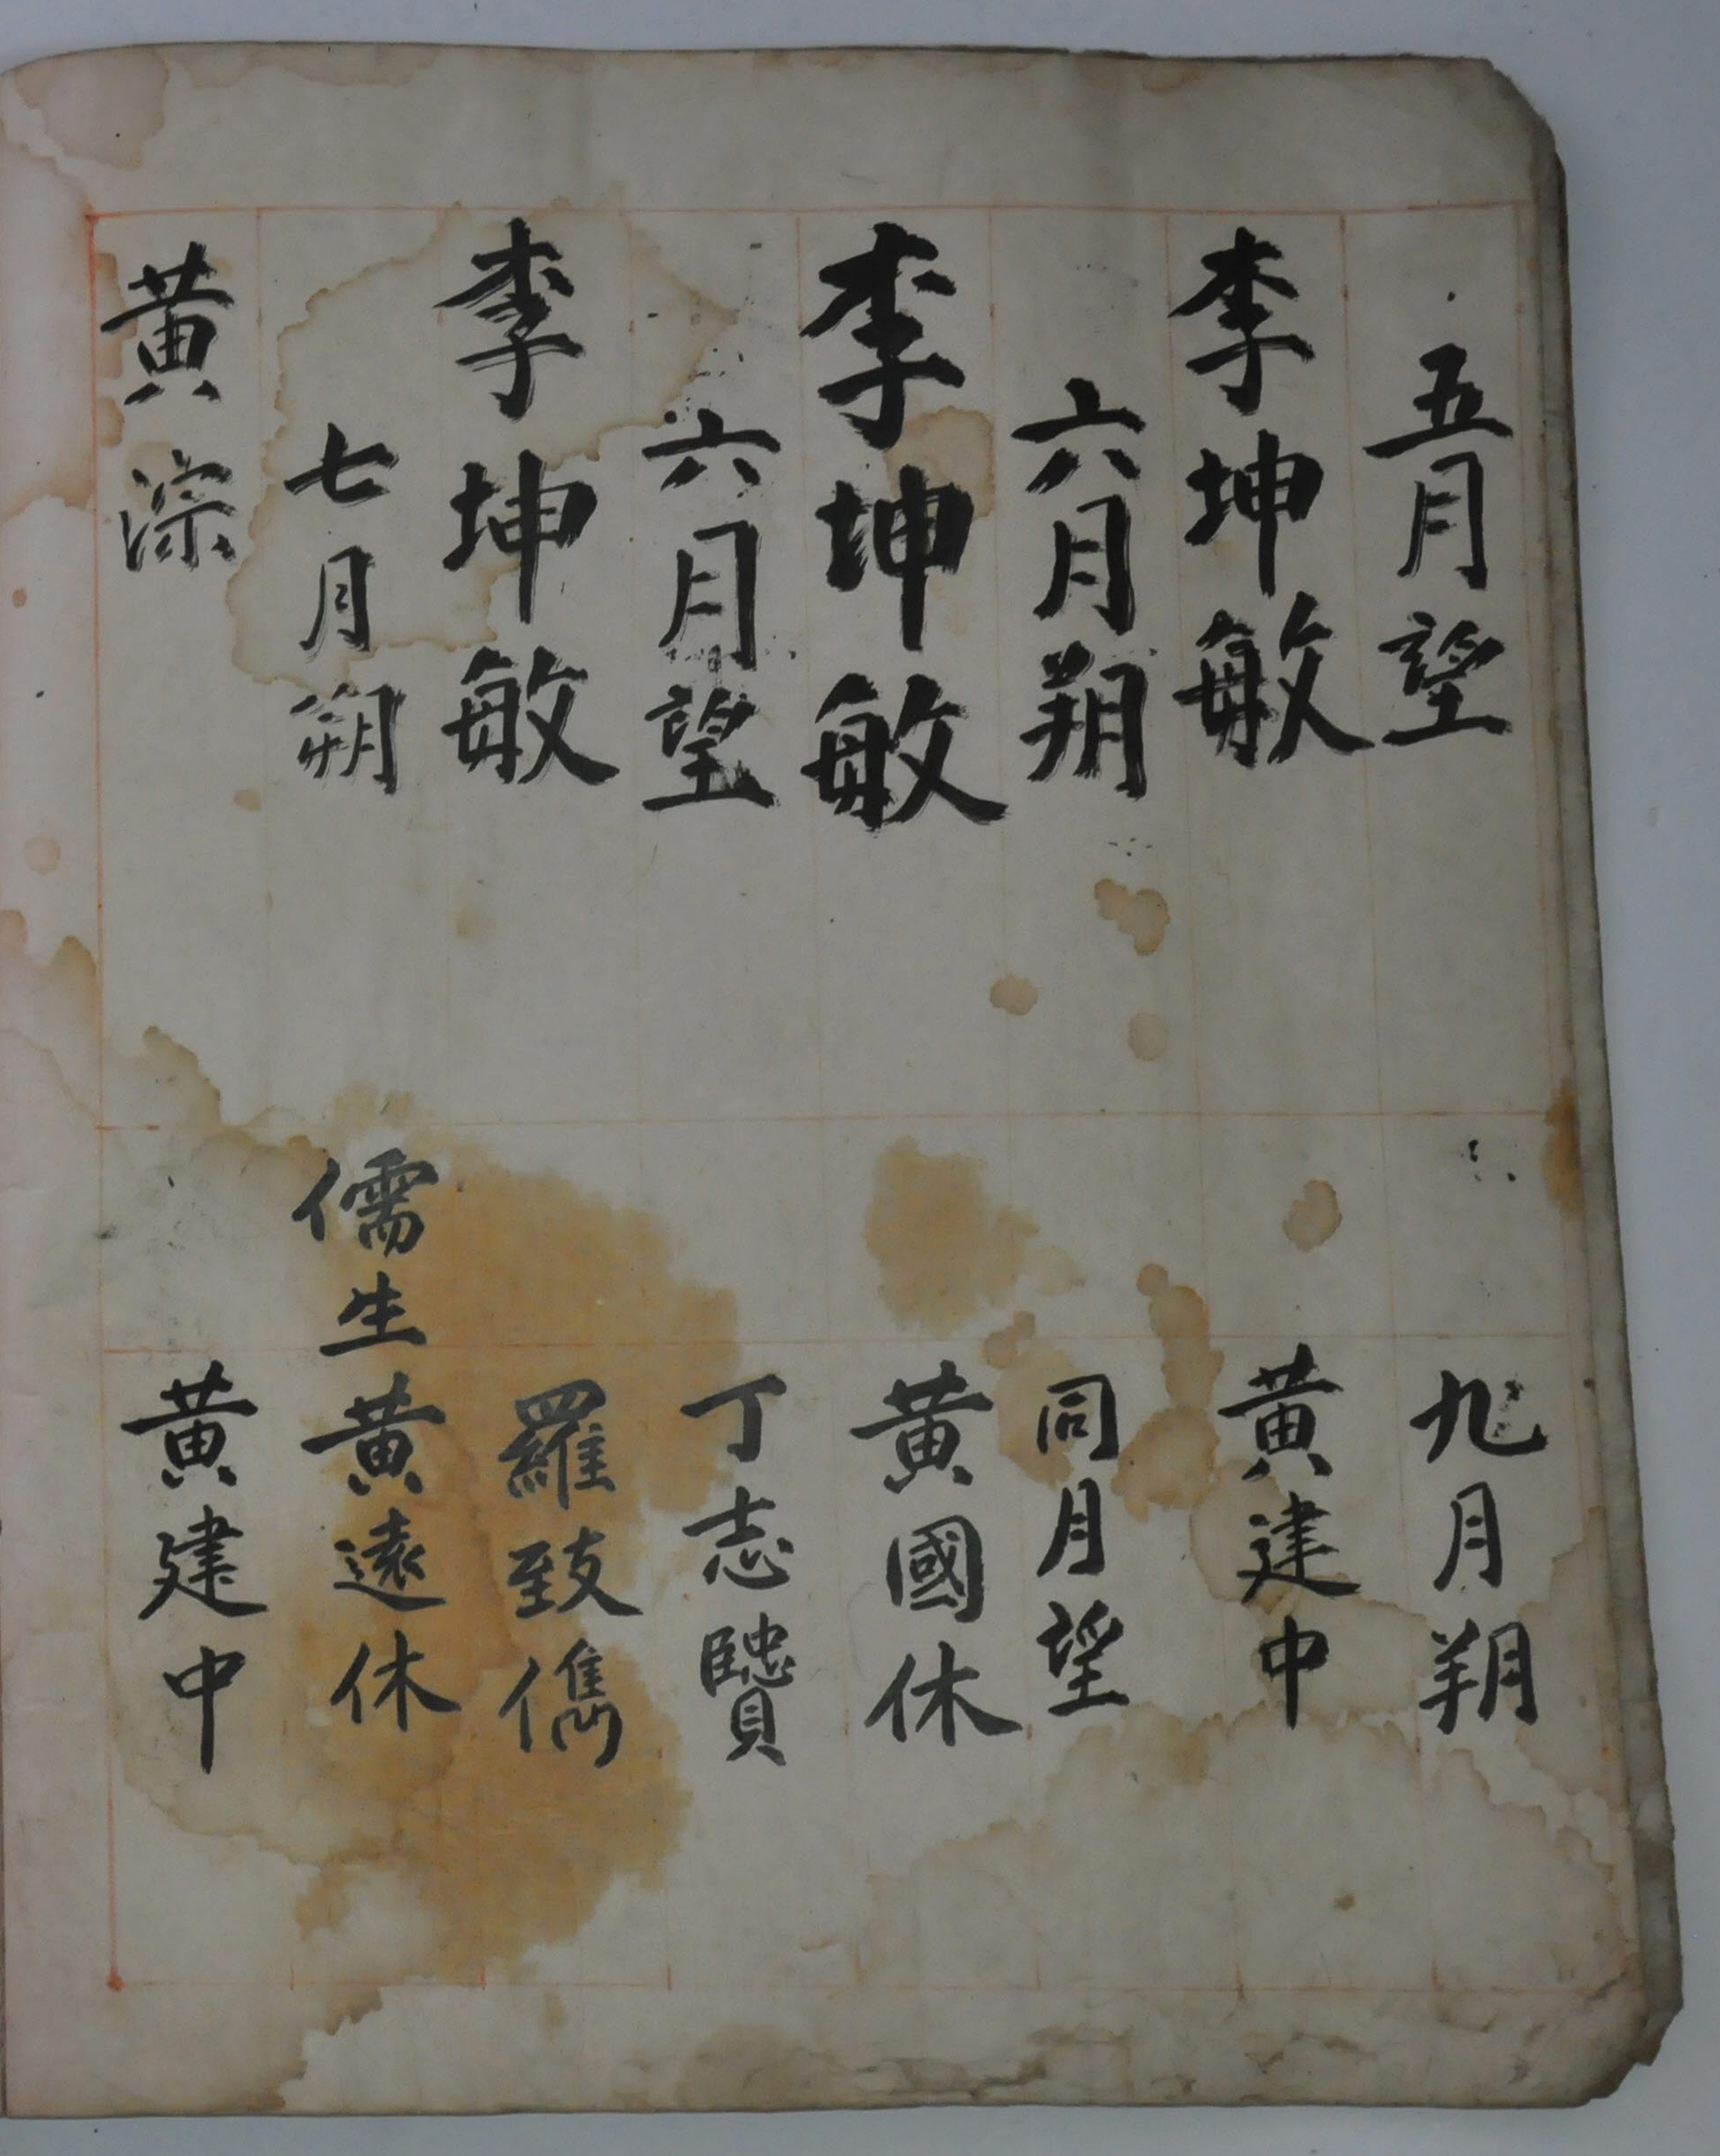 五月望
李坤敏
六月朔
李坤敏
六月望
李坤敏
七月朔
黃淙
九月朔
黃建中
同月望
黃國休
丁志
羅致儁
儒生黃遠休
黃建中